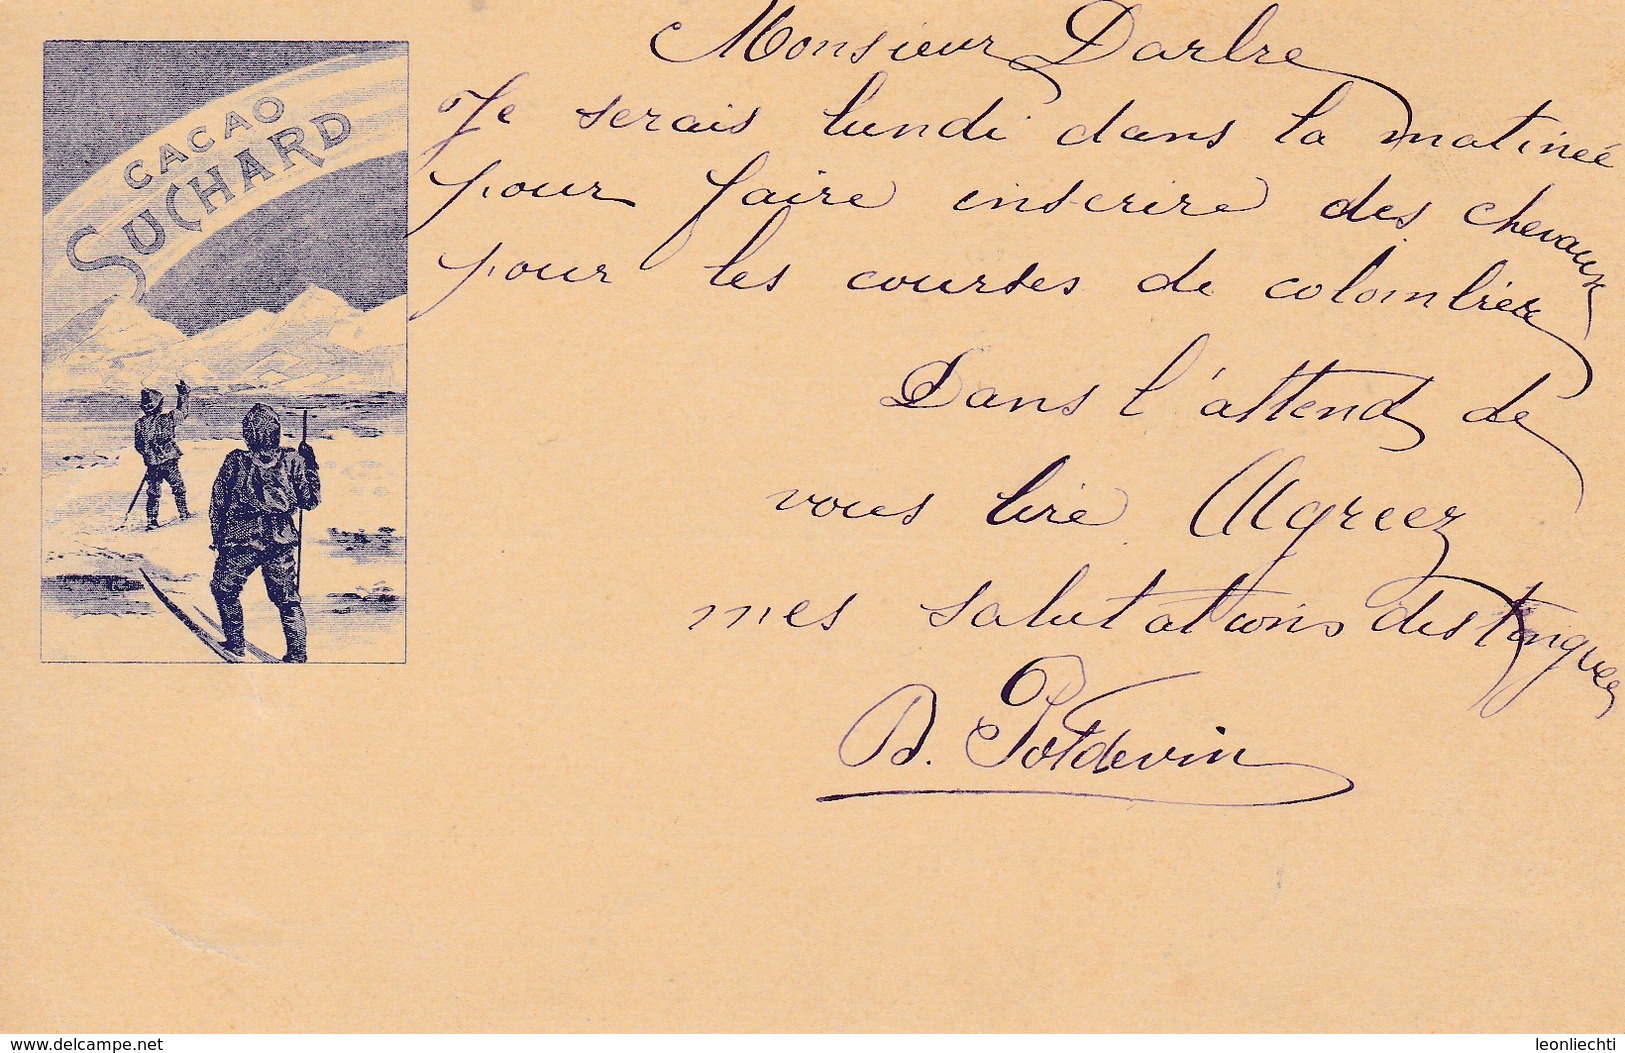 CACAO
SUCHARD
Monsieur Darbre
Je serais lundi dans la matinée
pour faire inscrire des chevaux
pour les courses de colombier
Dans l'attend de
vous lire Agreez
mes salutations destinguees
B. Potdevin
www.delcampe.net
leonliechti